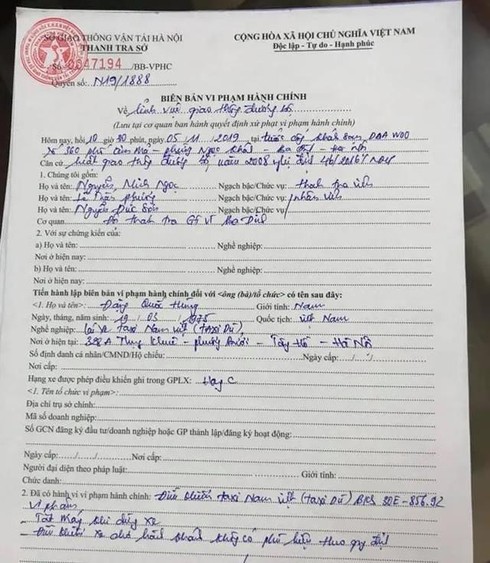 SỞ GIAO THÔNG VẬN TẢI HÀ NỘI
THANH TRA SỞ
CỘNG HÒA XÃ HỘI CHỦ NGHĨA VIỆT NAM
Độc lập - Tự do - Hạnh phúc
Số 0047194 /BB-VPHC
Quyển số: N19/1888
BIÊN BẢN VI PHẠM HÀNH CHÍNH
Về lĩnh vực giao thông đường bộ
(Lưu tại cơ quan ban hành quyết định xử phạt vi phạm hành chính)
Hôm nay, hồi 10 giờ 10 phút, ngày 05/11/2019 tại trước
Căn cứ luật giao thông đường bộ năm 2008 nghị định 46/2016/
1. Chúng tôi gồm:
Họ và tên: Nguyễn Minh Ngọc Ngạch bậc/Chức vụ: thanh tra viên
Họ và tên: Ngạch bậc/Chức vụ: nhân viên
Họ và tên: Nguyễn Đức Ngạch bậc/Chức vụ:
Cơ quan Đội thanh tra GTVT Ba Đình
2. Với sự chứng kiến của:
a) Họ và tên: Nghề nghiệp:
Nơi ở hiện nay:
b) Họ và tên: Nghề nghiệp:
Nơi ở hiện nay:
Tiến hành lập biên bản vi phạm hành chính đối với <ông (bà)/tổ chức> có tên sau đây:
<1. Họ và tên>: Đặng Quốc Hùng Giới tính: Nam
Ngày, tháng, năm sinh: 19/03/1975 Quốc tịch: Việt Nam
Nghề nghiệp: Lái xe taxi Nam Việt (taxi Dù)
Nơi ở hiện tại: 328A Thụy Khuê - phường Bưởi - Tây Hồ - Hà Nội
Số định danh cá nhân/CMND/Hộ chiếu: Ngày cấp:
Nơi cấp:
Hạng xe được phép điều khiển ghi trong GPLX: Hạng C
<1. Tên tổ chức vi phạm>:
Địa chỉ trụ sở chính:
Mã số doanh nghiệp:
Số GCN đăng ký đầu tư/doanh nghiệp hoặc GP thành lập/đăng ký hoạt động:
Ngày cấp:...../...../..... Nơi cấp:
Người đại diện theo pháp luật: Giới tính:
Chức danh:
2. Đã có hành vi vi phạm hành chính: Điều khiển taxi Nam Việt (taxi Dù) BKS 30E-856.92
Vi phạm
- Tắt máy khi dừng xe
- Điều khiển xe chở hành khách không có phù hiệu theo quy định